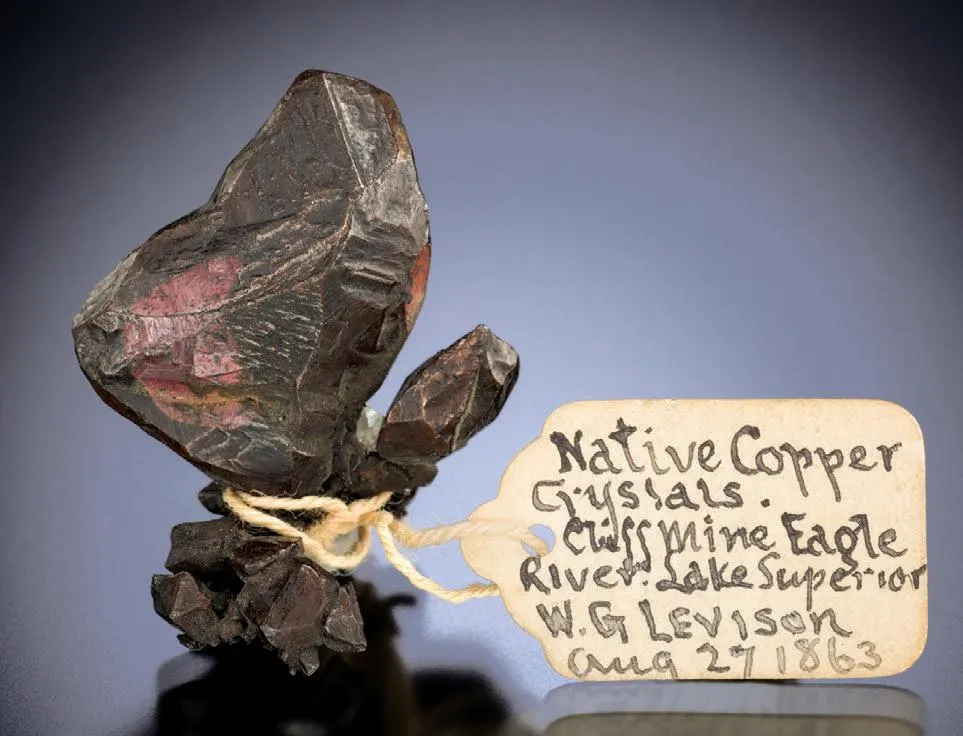 Native Copper
Crystals.
Cliff Mine Eagle
River. Lake Superior
W. G Levison
Aug 27 1863